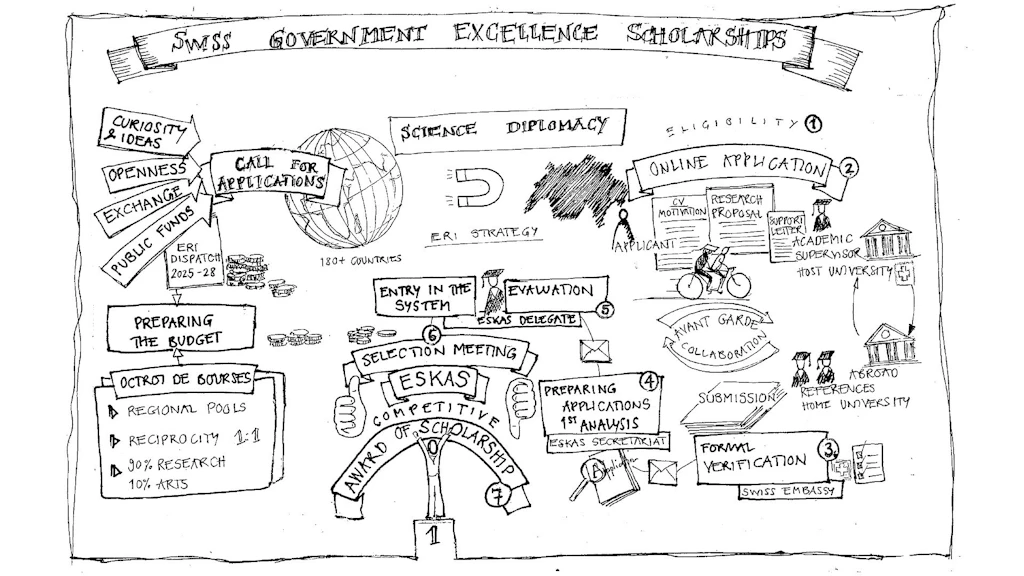 SWISS GOVERNMENT EXCELLENCE SCHOLARSHIPS
CURIOSITY
& IDEAS
OPENNESS
EXCHANGE
PUBLIC FUNDS
CALL FOR
APPLICATIONS
SCIENCE DIPLOMACY
ERI STRATEGY
180+ COUNTRIES
ERI
DISPATCH
2025-28
PREPARING
THE BUDGET
OCTROI DE BOURSES
REGIONAL POOLS
RECIPROCITY 1:1
90% RESEARCH
10% ARTS
ELIGIBILITY 1
ONLINE APPLICATION 2
CV
MOTIVATION
RESEARCH
PROPOSAL
SUPPORT
LETTER
APPLICANT
ACADEMIC
SUPERVISOR
HOST UNIVERSITY
AVANT GARDE
COLLABORATION
ABROAD
REFERENCES
HOME UNIVERSITY
SUBMISSION
3
FORMAL
VERIFICATION
SWISS EMBASSY
4
PREPARING
APPLICATIONS
1ST ANALYSIS
ESKAS SECRETARIAT
Application
ENTRY IN THE
SYSTEM
EVALUATION
5
ESKAS DELEGATE
6
SELECTION MEETING
ESKAS
COMPETITIVE
AWARD OF SCHOLARSHIP
7
1